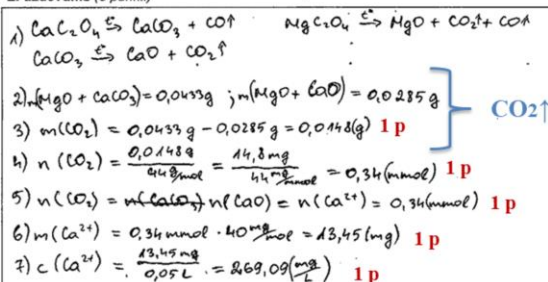 1) CaC₂O₄ →t° CaCO₃ + CO↑ MgC₂O₄ →t° MgO + CO₂↑ + CO↑
CaCO₃ →t° CaO + CO₂↑
2) m(MgO + CaCO₃) = 0,0433g ; m(MgO + CaO) = 0,0285 g
CO2↑
3) m(CO₂) = 0,0433g - 0,0285g = 0,0148(g) 1 p
4) n (CO₂) = 0,0148g / 44 g/mol = 14,8mg / 44 mg/mmol = 0,34(mmol) 1 p
5) n(CO₂) = n(CaCO₃) n(CaO) = n(Ca²⁺) = 0,34(mmol) 1 p
6) m(Ca²⁺) = 0,34mmol · 40 mg/mmol = 13,45(mg) 1 p
7) c(Ca²⁺) = 13,45mg / 0,05L = 269,09(mg/L) 1 p